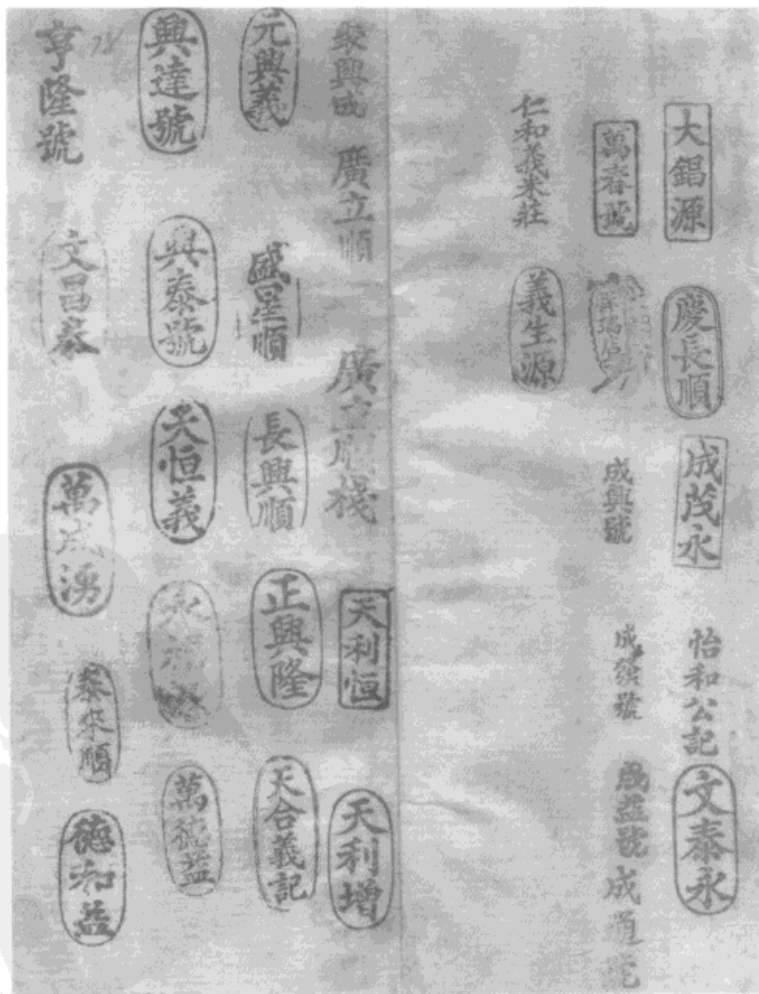 大錩源
慶長順
成茂永
怡和公記
文泰永
萬春號
成興號
成績號
成益號
仁和義米莊
義生源
聚興成
廣立順
廣立順棧
天利恒
天利增
元興義
盛呈順
長興順
正興隆
天合義記
興達號
興泰號
天恒義
萬德益
亨隆號
文昌泰
萬成湧
泰來順
德和益